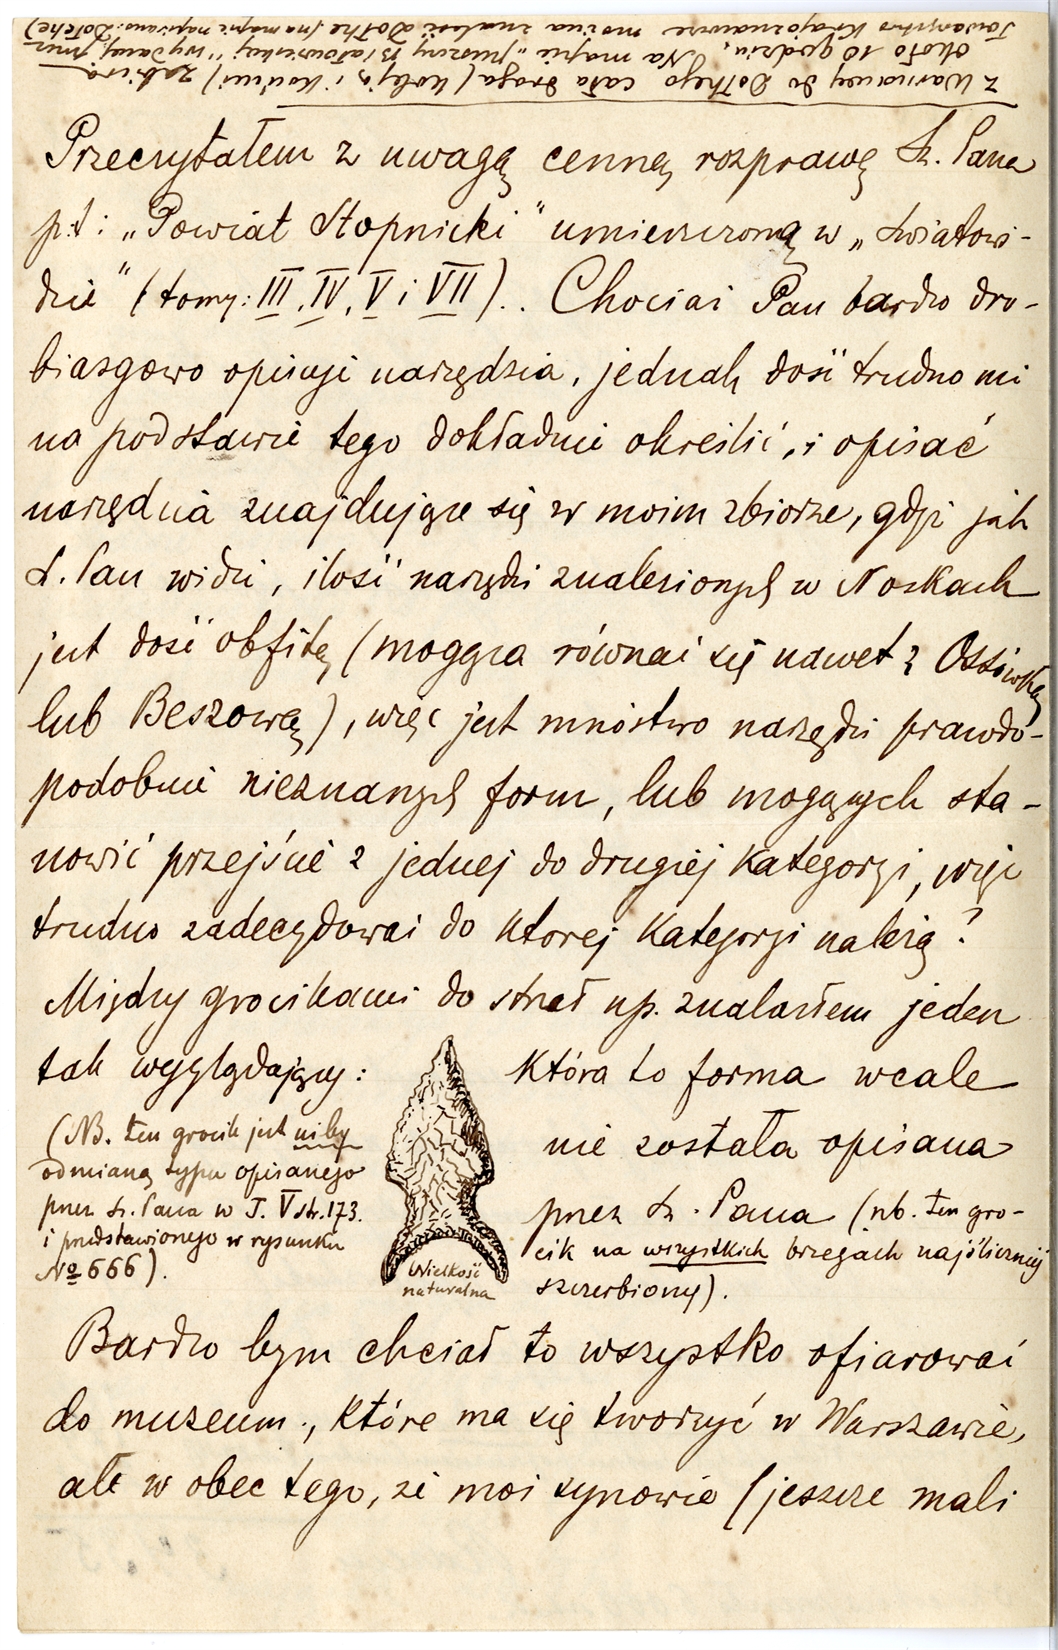 Z Warszawy do Dołhego cała droga (koleją i końmi) zabiera
około 10 godzin. Na mapie „Puszczy Białowieskiej" wydanej przez
Towarzystwo Krajoznawcze można znaleść Dołhe (na mapie napisano: Dołche)
Przeczytałem z uwagą cenną rozprawę Sz. Pana
p.t: „Powiat Stopnicki" umieszczoną w „Światowi-
dzie" (tomy: III, IV, V i VII).. Chociaż Pan bardzo dro-
biazgowo opisuje narzędzia, jednak dość trudno mi
na podstawie tego dokładnie określić, i opisać
narzędzia znajdujące się w moim zbiorze, gdyż jak
S. Pan widzi, ilość narzędzi znalezionych w Noskach
jest dość obfitą (mogąca równać się nawet z Ossówką
lub Beszową), więc jest mnóstwo narzędzi prawdo-
podobnie nieznanych form, lub mogących sta-
nowić przejście z jednej do drugiej kategoryi, więc
trudno zadecydować do ktorej kategoryi należą?
Między grocikami do strzał np. znalazłem jeden
tak wyglądający:
(NB. ten grocik jest niby
odmianą typu opisanego
przez Sz. Pana w T. V str. 173.
i przedstawionego w rysunku
№ 666).
Wielkość
naturalna
która to forma wcale
nie została opisana
przez Sz. Pana (nb. ten gro-
cik na wszystkich brzegach najśliczniej
szczerbiony).
Bardzo bym chciał to wszystko ofiarować
do muzeum, które ma się tworzyć w Warszawie,
ale w obec tego, że moi synowie (jeszcze mali